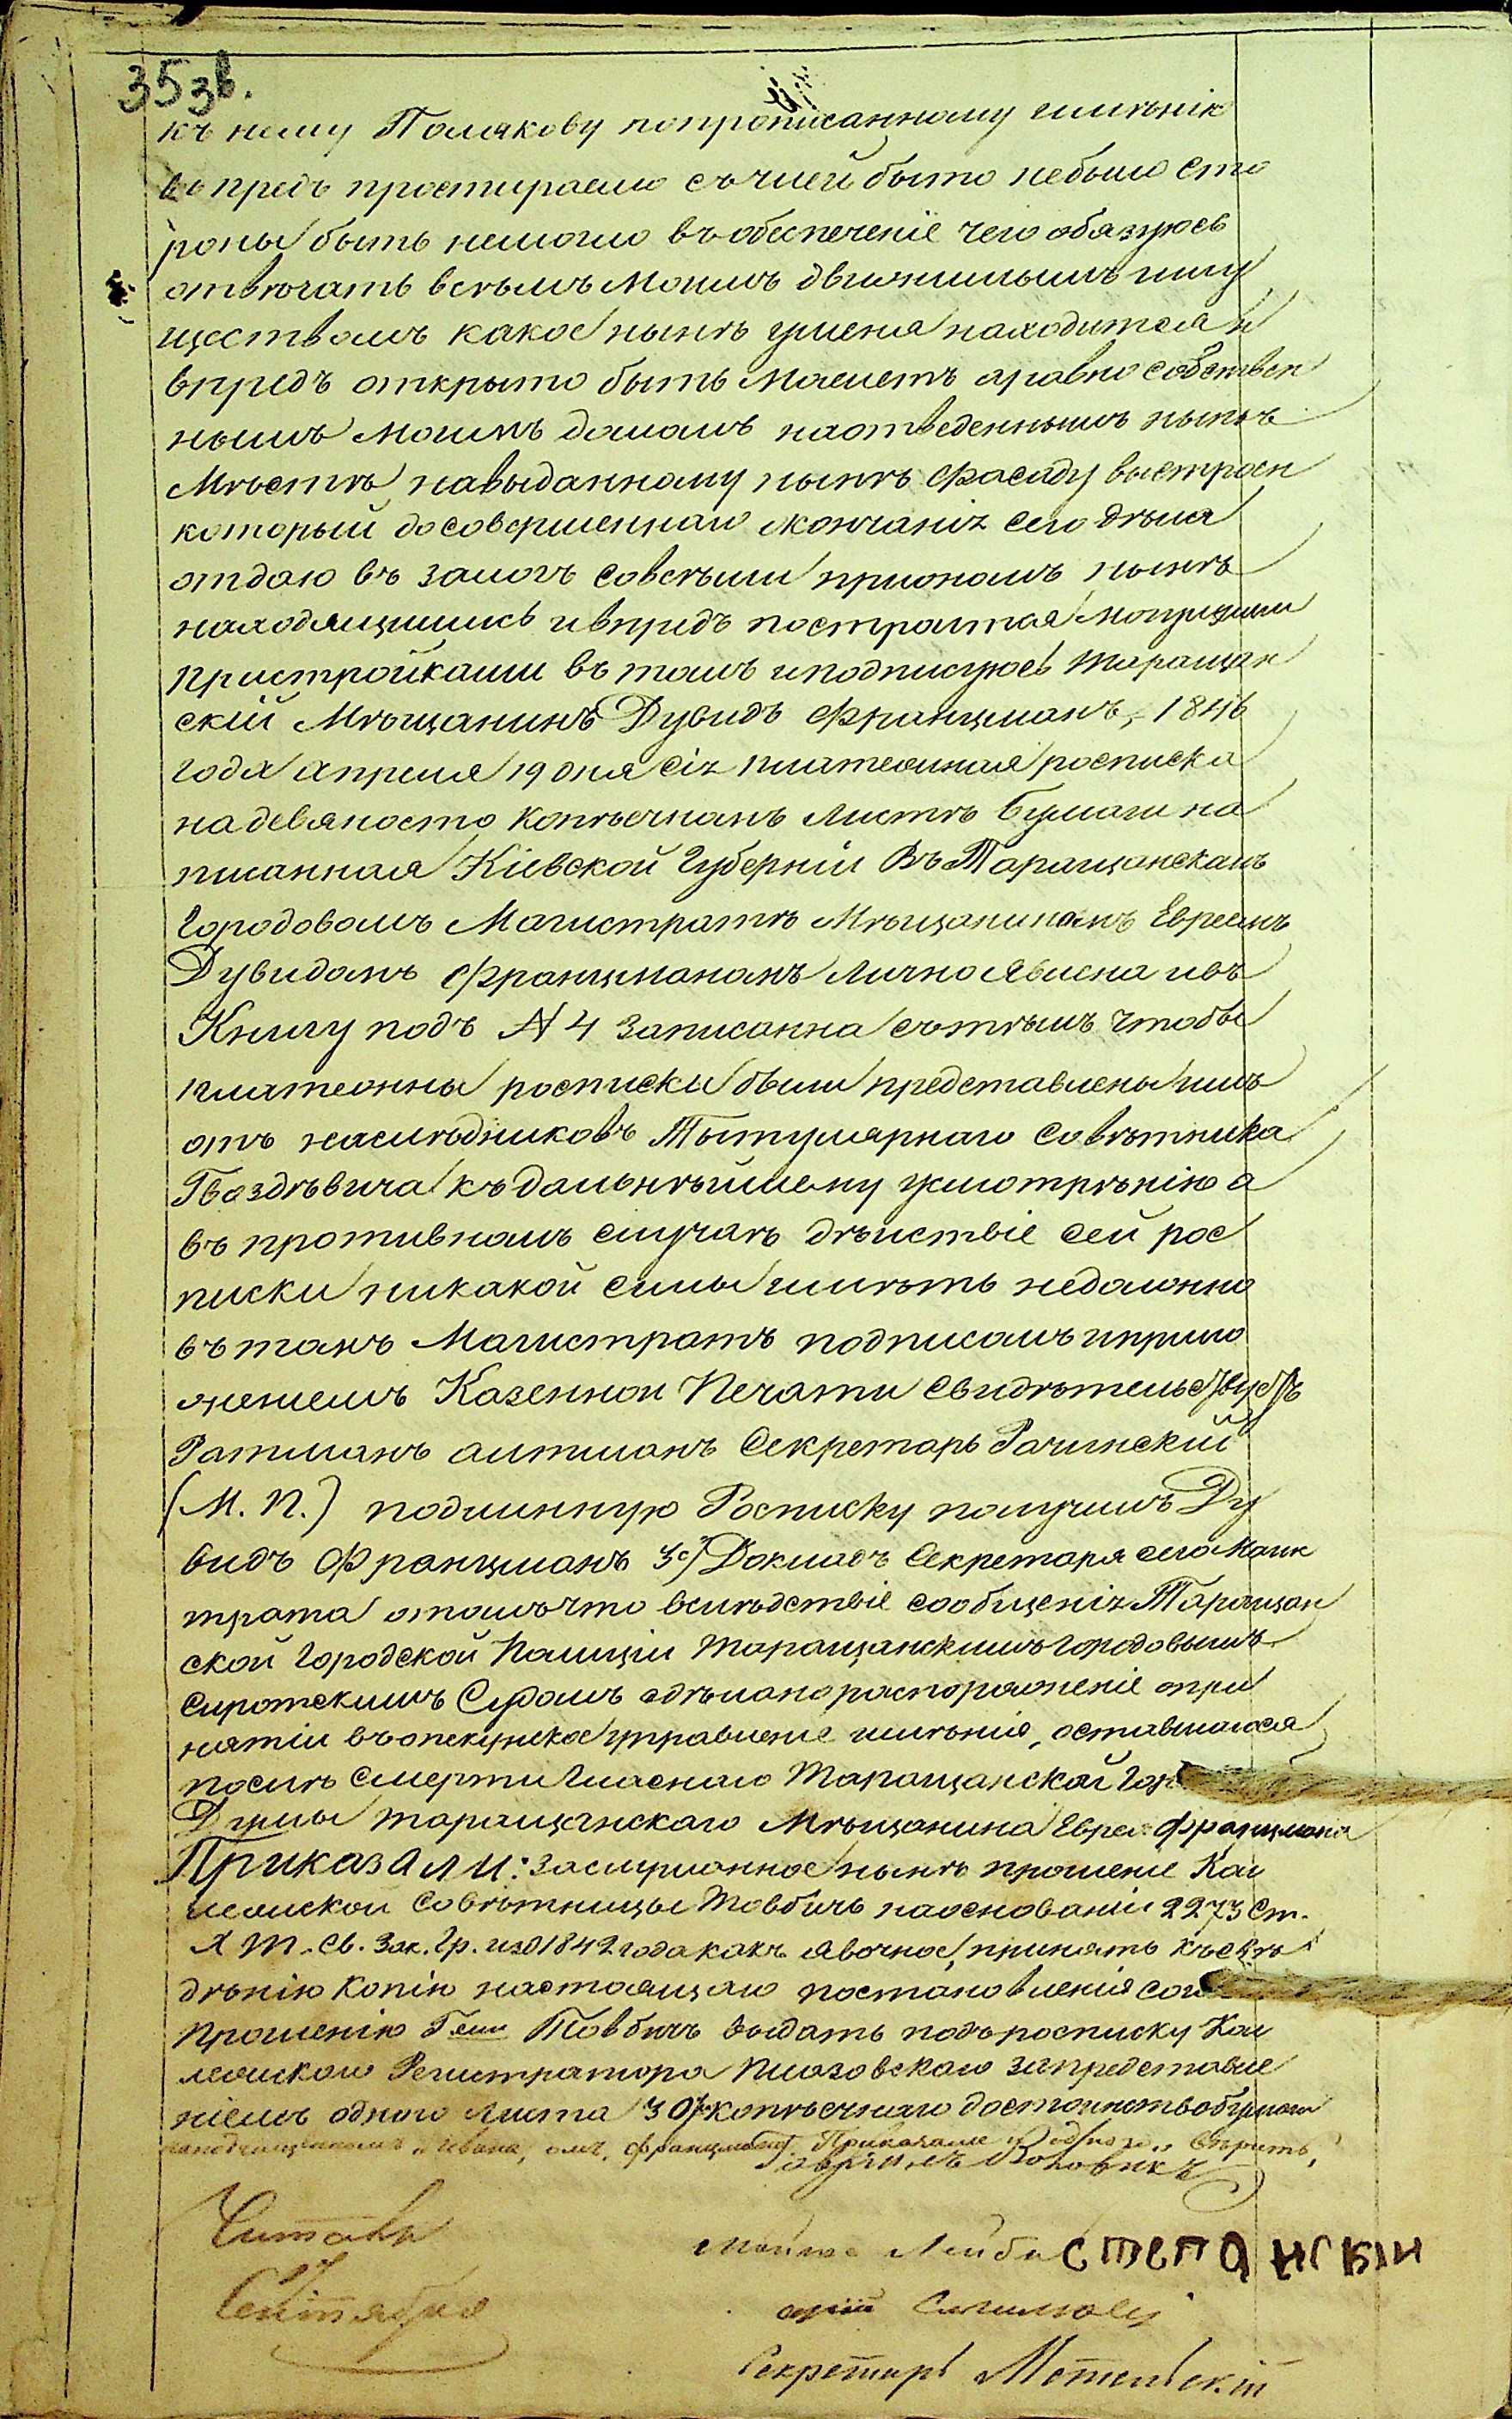 353в.
къ нему Полякову попрописанному имѣнію
въпредь простираемо съ чіей быто небыло сто
роны быть немогло въ обеспеченіе чего обязуюсь
отвѣчать всѣмъ Моимъ движимымъ иму
ществомъ какое нынѣ уменя находится и
впредъ открыто быть Можетъ аравно собствен
нымъ Моимъ домомъ наотведенномъ нынѣ
Мѣстѣ навыданному нынѣ фасаду выстроен
который досовершеннаго окончанія сего дѣла
отдаю въ залогъ совсѣми принономъ нынѣ
находящимись ивпредъ построится Могущими
пристройками въ томъ иподписуюсь Таращан
скій Мѣщанинъ Дувидъ Францманъ, 1846
года апреля 19 дня сія платежная росписка
надевяносто копѣечномъ листѣ бумаги на
писанная Кіевской Губерніи Въ Таращанскомъ
Городовомъ Магистратѣ Мѣщаниномъ Евреемъ
Дувидомъ Францманомъ лично явлена ивъ
Книгу подъ № 4 записанна сътѣмъ чтобы
платежны росписки были представлены имъ
отъ наслѣдниковъ Тытулярнаго Совѣтника
Гвоздѣвича къ дальнѣйшему усмотрѣнію а
въ противномъ случаѣ дѣиствіе сей рос
писки никакой силы имѣть недолжно
въ томъ Магистратъ подписомъ иприло
женіемъ Казенной Печати свидѣтельствуетъ
Ратманъ алтманъ Секретарь Рачинскій
(М. П.) подлинную Росписку получилъ Ду
видъ Францманъ 3е) Докладъ Секретаря сего Магис
трата отомъ что вслѣдствіе сообщенія Таращан
ской Городской Полиціи Таращанскимъ городовымъ
Сиротскимъ Судомъ здѣлано распоряженіе опри
нятіи въ опекунское управленіе имѣнія, оставшагося
послѣ смерти Гласнаго Таращанской Гор
Думы таращанскаго Мѣщанина Еврея Францмана
Приказали: Заслушанное нынѣ прошеніе Кол
лежской Совѣтницы Товбичъ наоснованіи 2273 Ст.
X Т. Св. Зак. Гр. изд 1842 года какъ явочное, принять къ свѣ
дѣнію Копію настоящаго постановленія сог
прошенію Г-жи Товбичъ выдать подъ росписку Кол
лежскаго Регистратора Плазовскаго запредставле
ніемъ одного листа 30 копѣечнаго достоинства бумаги
Францмана Приказали
Читалъ
Сентября
Мойше Лейба Степанскій
Секретарь